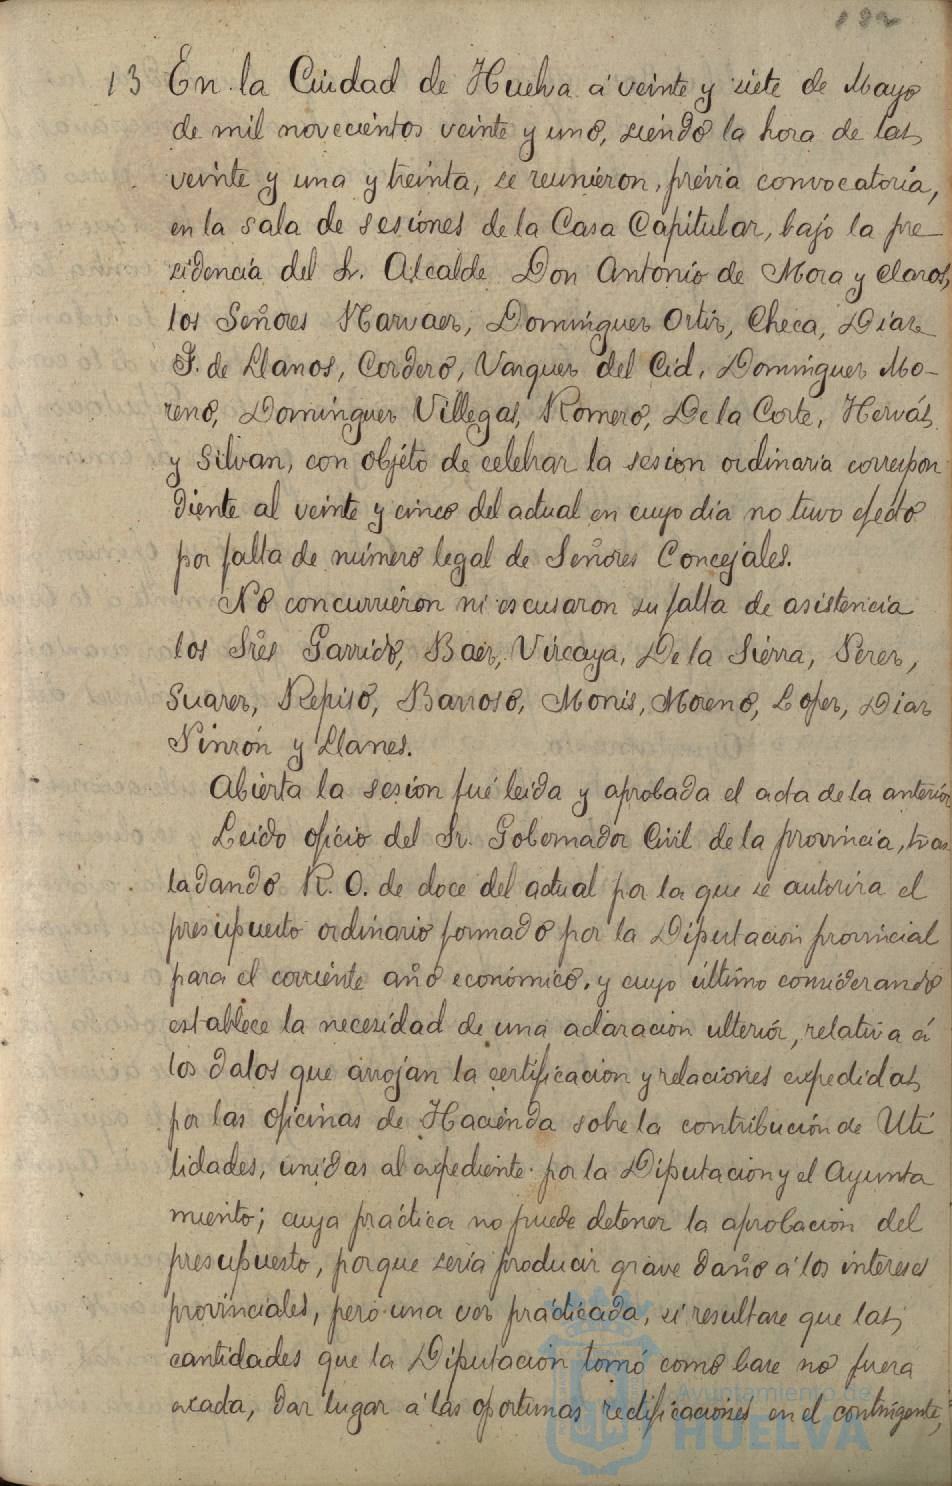 132
13 En la Ciudad de Huelva á veinte y siete de Mayo
de mil novecientos veinte y uno, siendo la hora de las
veinte y una y treinta, se reunieron, prévia convocatoria,
en la sala de sesiones de la Casa Capitular, bajo la pre
sidencia del Sr. Alcalde Don Antonio de Mora y Claros,
los Señores Narvaez, Dominguez Ortiz, Checa, Diaz
F. de Llanos, Cordero, Vazquez del Cid, Dominguez Mo-
reno, Dominguez Villegas, Romero, De la Corte, Hervás
y Silvan, con objéto de celebrar la sesion ordinaria correspon
diente al veinte y cinco del actual en cuyo dia no tuvo efecto
por falta de número legal de Señores Concejales.
No concurrieron ni escusaron su falta de asistencia
los Sres Garrido, Baez, Vizcaya, De la Sierra, Perez,
Suarez, Repiso, Barroso, Monis, Moreno, Lopez, Diaz
Pinzón y Llanes.
Abierta la sesión fué leida y aprobada el acta de la anterior
Leido oficio del Sr. Gobernador Civil de la provincia, tras
ladando R. O. de doce del actual por la que se autoriza el
presupuesto ordinario formado por la Diputación provincial
para el corriente año económico, y cuyo último considerando
establece la necesidad de una aclaración ulterior, relativa á
los datos que arrojan la certificacion y relaciones expedidas
por las oficinas de Hacienda sobre la contribución de Uti
lidades, unidas al expediente por la Diputacion y el Ayunta
miento; cuya práctica no puede detener la aprobacion del
presupuesto, porque seria producir grave daño á los intereses
provinciales, pero una vez practicada, si resultare que las
cantidades que la Diputación tomó como base no fuera
exada, dar lugar á las oportunas rectificaciones en el contingente,
Ayuntamiento de
HUELVA